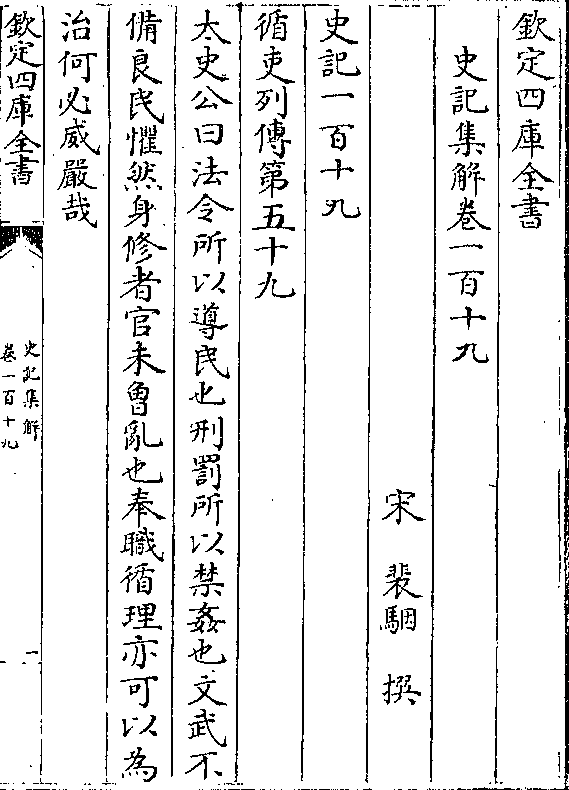 欽定四庫全書
史記集解卷一百十九
宋 裴駰 撰
史記一百十九
循吏列傳第五十九
太史公曰法令所以導民也刑罰所以禁姦也文武不
備良民懼然身修者官未曾亂也奉職循理亦可以為
治何必威嚴哉
欽定四庫全書
史記集解
卷一百十九
一